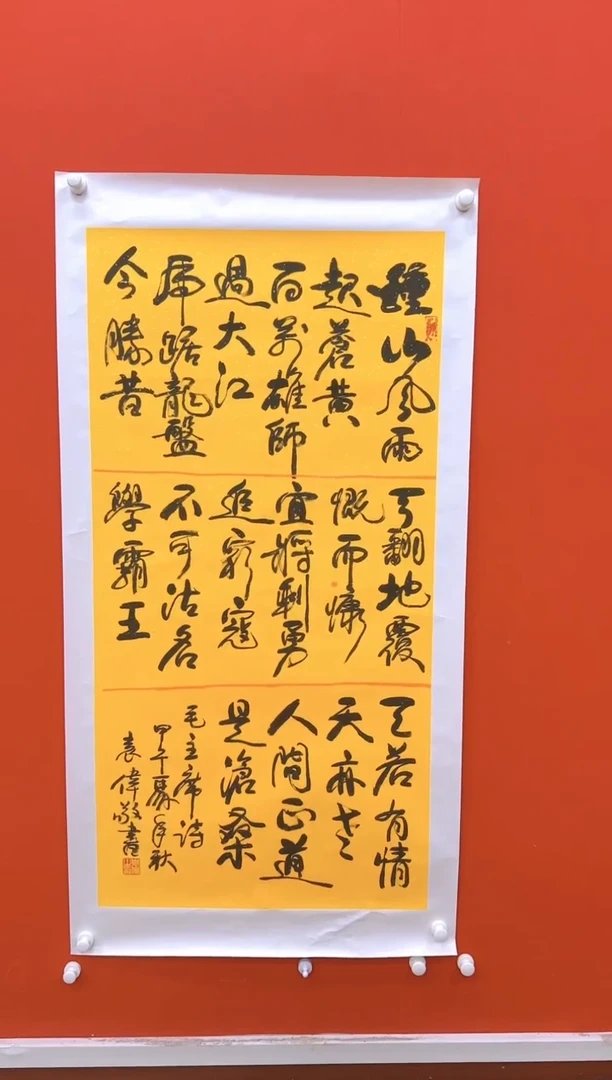 鍾山風雨
起蒼黄
百萬雄師
過大江
虎踞龍盤
今勝昔
天翻地覆
慨而慷
宜將剩勇
追窮寇
不可沽名
學霸王
天若有情
天亦老
人間正道
是滄桑
毛主席詩
甲午馬年秋
袁偉敬書